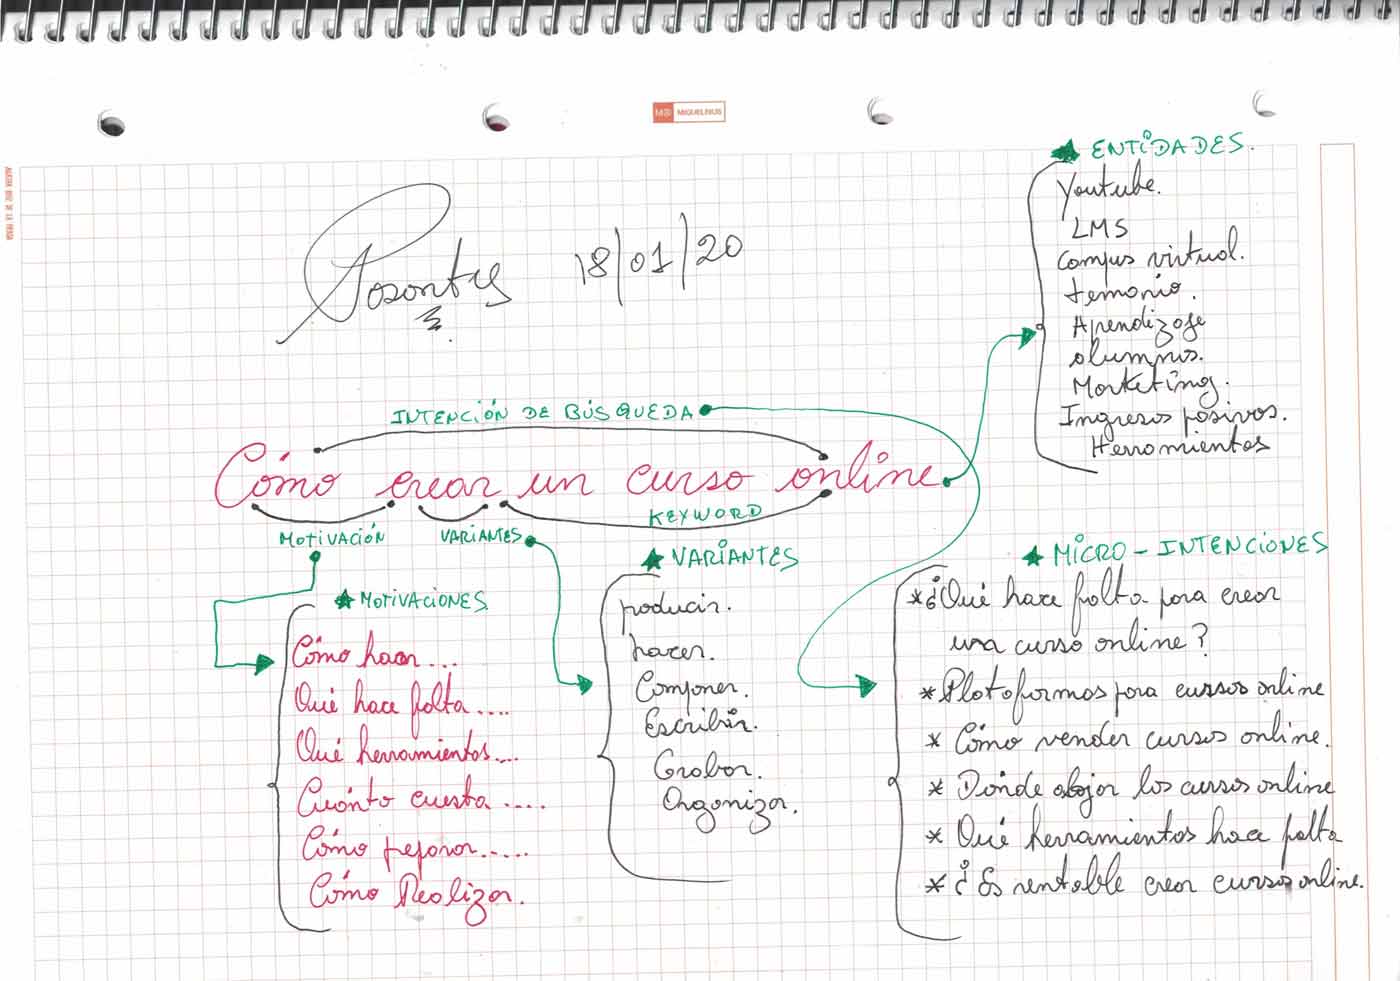 MIQUELRIUS
18/01/20
ENTIDADES.
Youtube.
LMS
Campus virtual.
temario.
Aprendizaje
alumnos.
Marketing.
Ingresos pasivos.
Herramientas
INTENCIÓN DE BÚSQUEDA
Cómo crear un curso online
KEYWORD
MOTIVACIÓN
VARIANTES
MOTIVACIONES
Cómo hacer...
Qué hace falta....
Qué herramientas....
Cuánto cuesta.....
Cómo preparar.....
Cómo Realizar.
VARIANTES
producir.
hacer.
Componer.
Escribir.
Grabar.
Organizar.
MICRO-INTENCIONES
*¿Qué hace falta para crear
una curso online?
*Plataformas para cursos online
* Cómo vender cursos online.
* Dónde alojar los cursos online
* Qué herramientas hace falta
* ¿Es rentable crear cursos online.